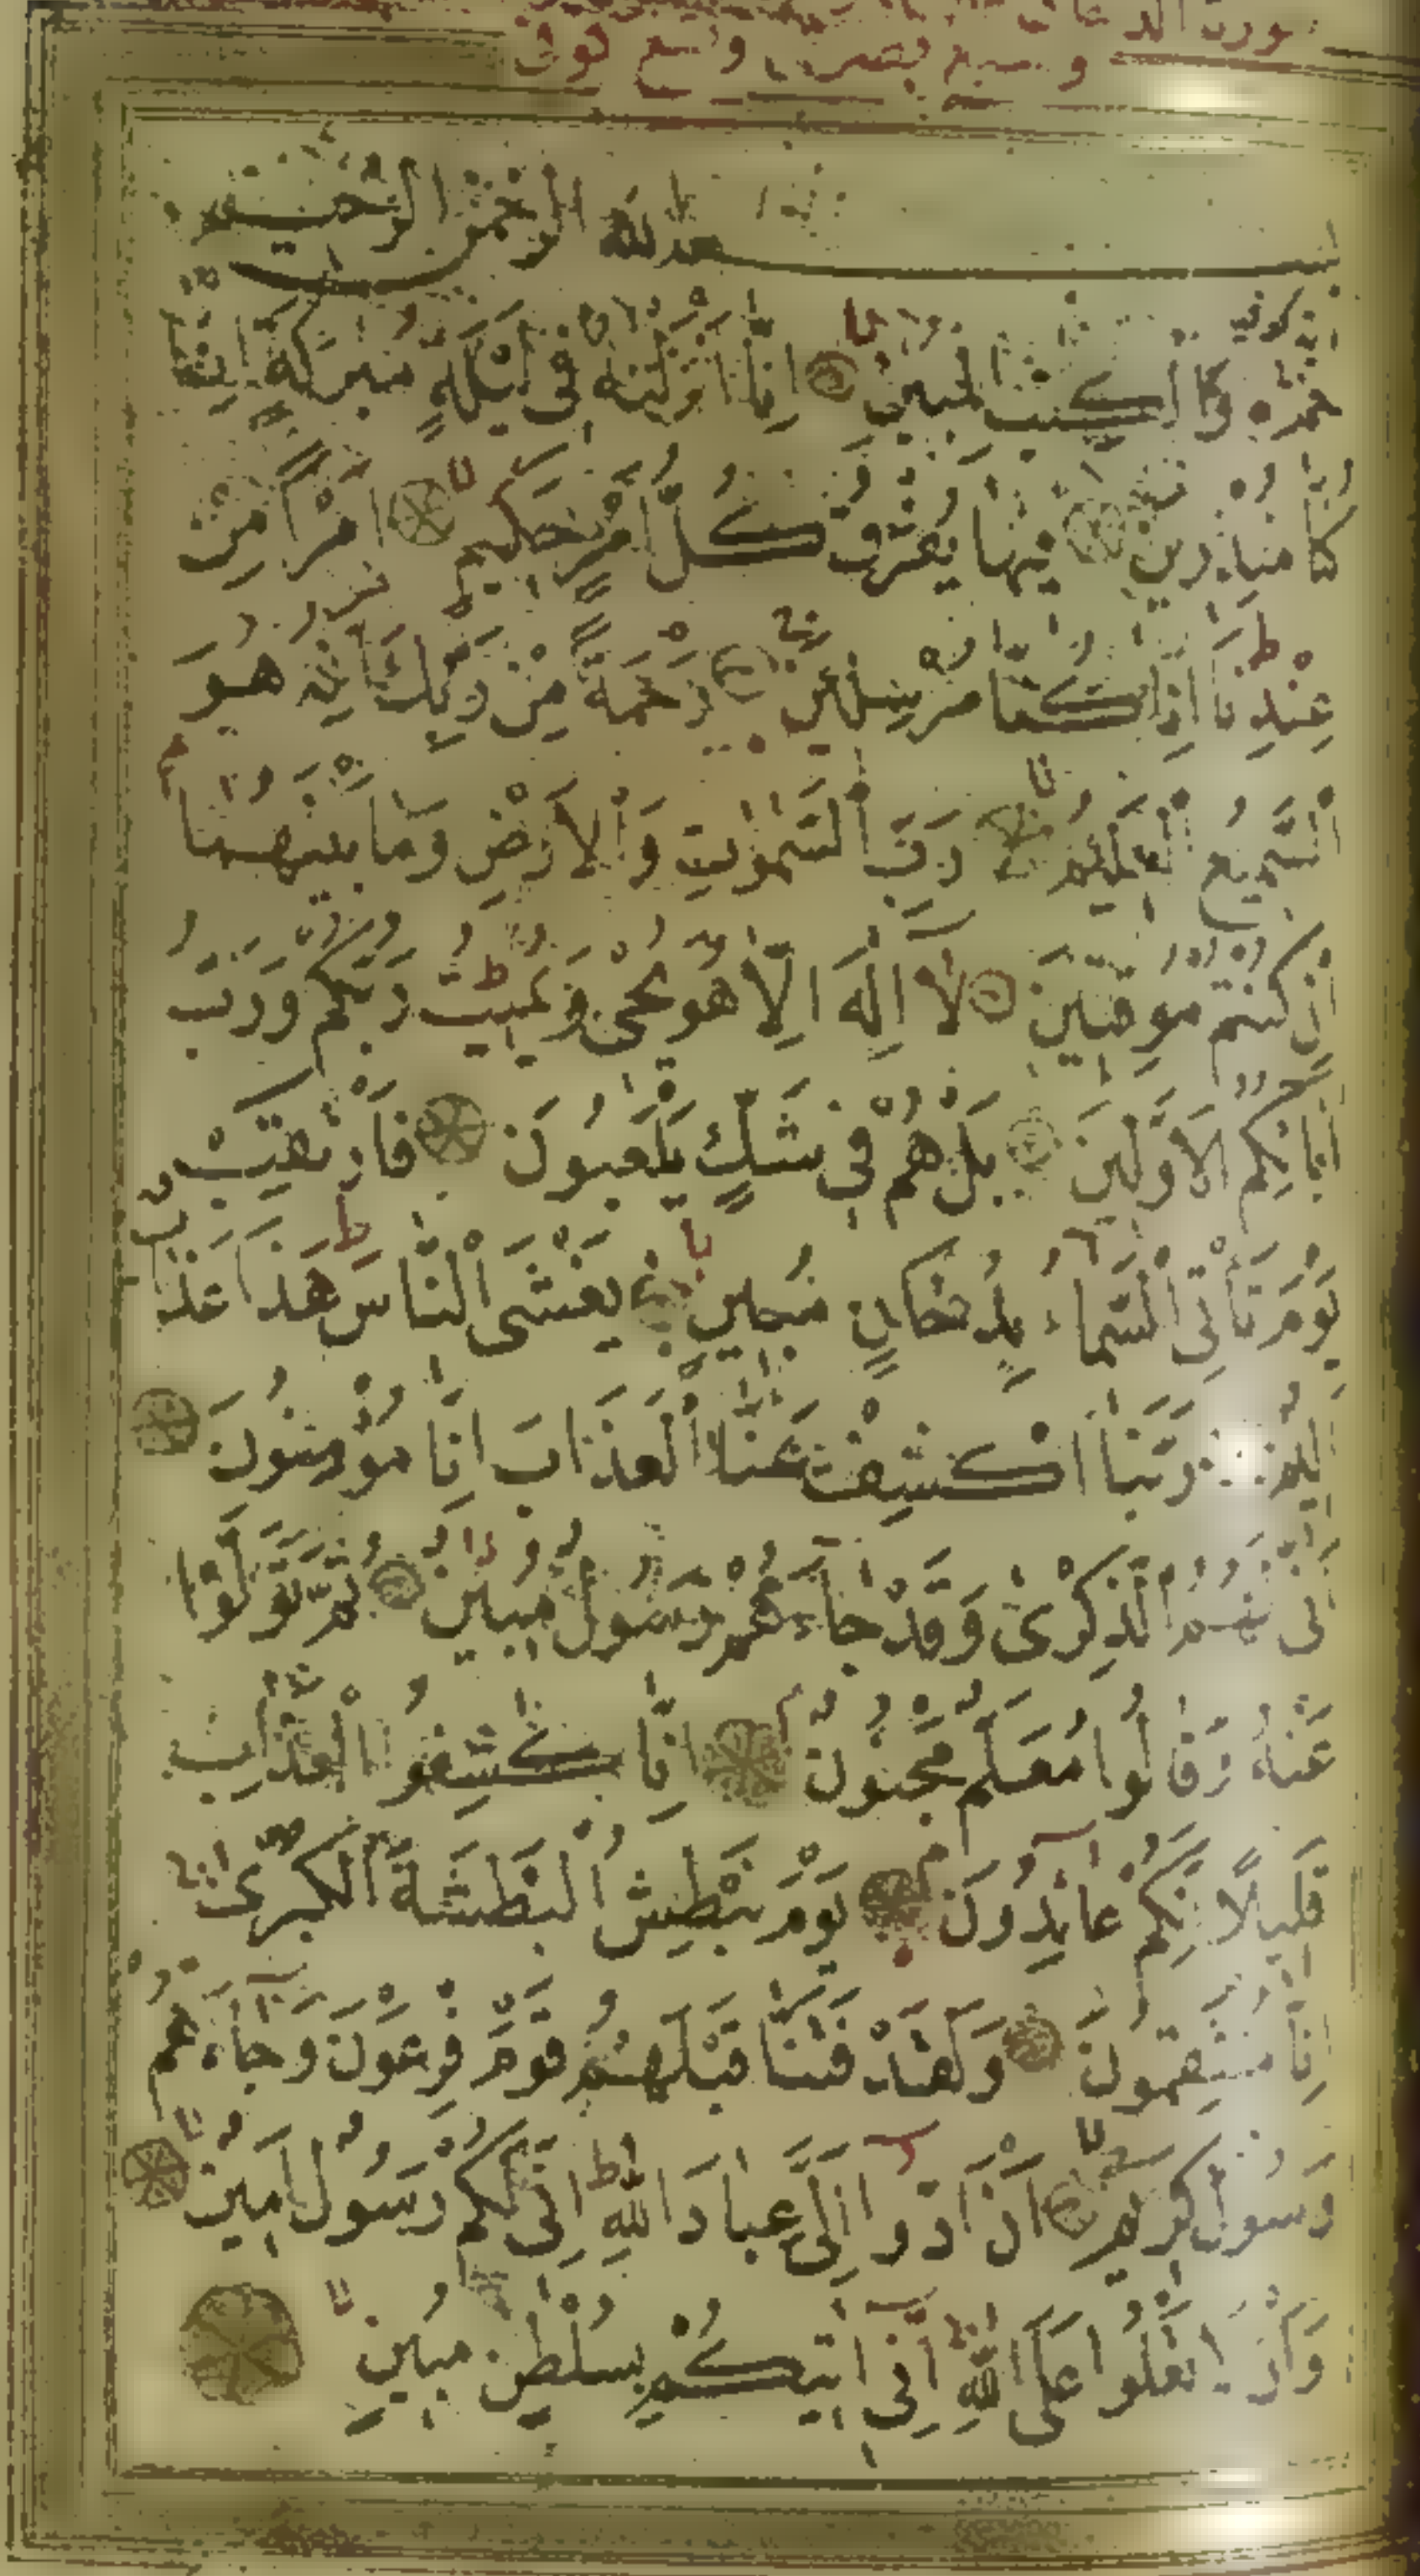 سورة الدخان
و سبع بصرى و تسع كوفى
بسم الله الرحمن الرحيم
اية كوفية
حم وَالْكِتٰبِ الْمُبِينِ اِنَّا اَنْزَلْنٰهُ فِى لَيْلَةٍ مُبٰرَكَةٍ اِنَّا
كُنَّا مُنْذِرِينَ فِيهَا يُفْرَقُ كُلُّ اَمْرٍ حَكِيمٍ اَمْرًا مِنْ
عِنْدِنَا اِنَّا كُنَّا مُرْسِلِينَ رَحْمَةً مِنْ رَبِّكَ اِنَّهُ هُوَ
السَّمِيعُ الْعَلِيمُ رَبِّ السَّمٰوٰتِ وَالْاَرْضِ وَمَا بَيْنَهُمَا
اِنْ كُنْتُمْ مُوقِنِينَ لَا اِلٰهَ اِلَّا هُوَ يُحْيِى وَيُمِيتُ رَبُّكُمْ وَرَبُّ
اٰبَائِكُمُ الْاَوَّلِينَ بَلْ هُمْ فِى شَكٍّ يَلْعَبُونَ فَارْتَقِبْ
يَوْمَ تَأْتِى السَّمَاءُ بِدُخَانٍ مُبِينٍ يَغْشَى النَّاسَ هٰذَا عَذَابٌ
اَلِيمٌ رَبَّنَا اكْشِفْ عَنَّا الْعَذَابَ اِنَّا مُؤْمِنُونَ
اَنّٰى لَهُمُ الذِّكْرٰى وَقَدْ جَاءَهُمْ رَسُولٌ مُبِينٌ ثُمَّ تَوَلَّوْا
عَنْهُ وَقَالُوا مُعَلَّمٌ مَجْنُونٌ اِنَّا كَاشِفُوا الْعَذَابِ
قَلِيلًا اِنَّكُمْ عَائِدُونَ يَوْمَ نَبْطِشُ الْبَطْشَةَ الْكُبْرٰى
اِنَّا مُنْتَقِمُونَ وَلَقَدْ فَتَنَّا قَبْلَهُمْ قَوْمَ فِرْعَوْنَ وَجَاءَهُمْ
رَسُولٌ كَرِيمٌ اَنْ اَدُّوا اِلَىَّ عِبَادَ اللّٰهِ اِنِّى لَكُمْ رَسُولٌ اَمِينٌ
وَاَنْ لَا تَعْلُوا عَلَى اللّٰهِ اِنِّى اٰتِيكُمْ بِسُلْطٰنٍ مُبِينٍ